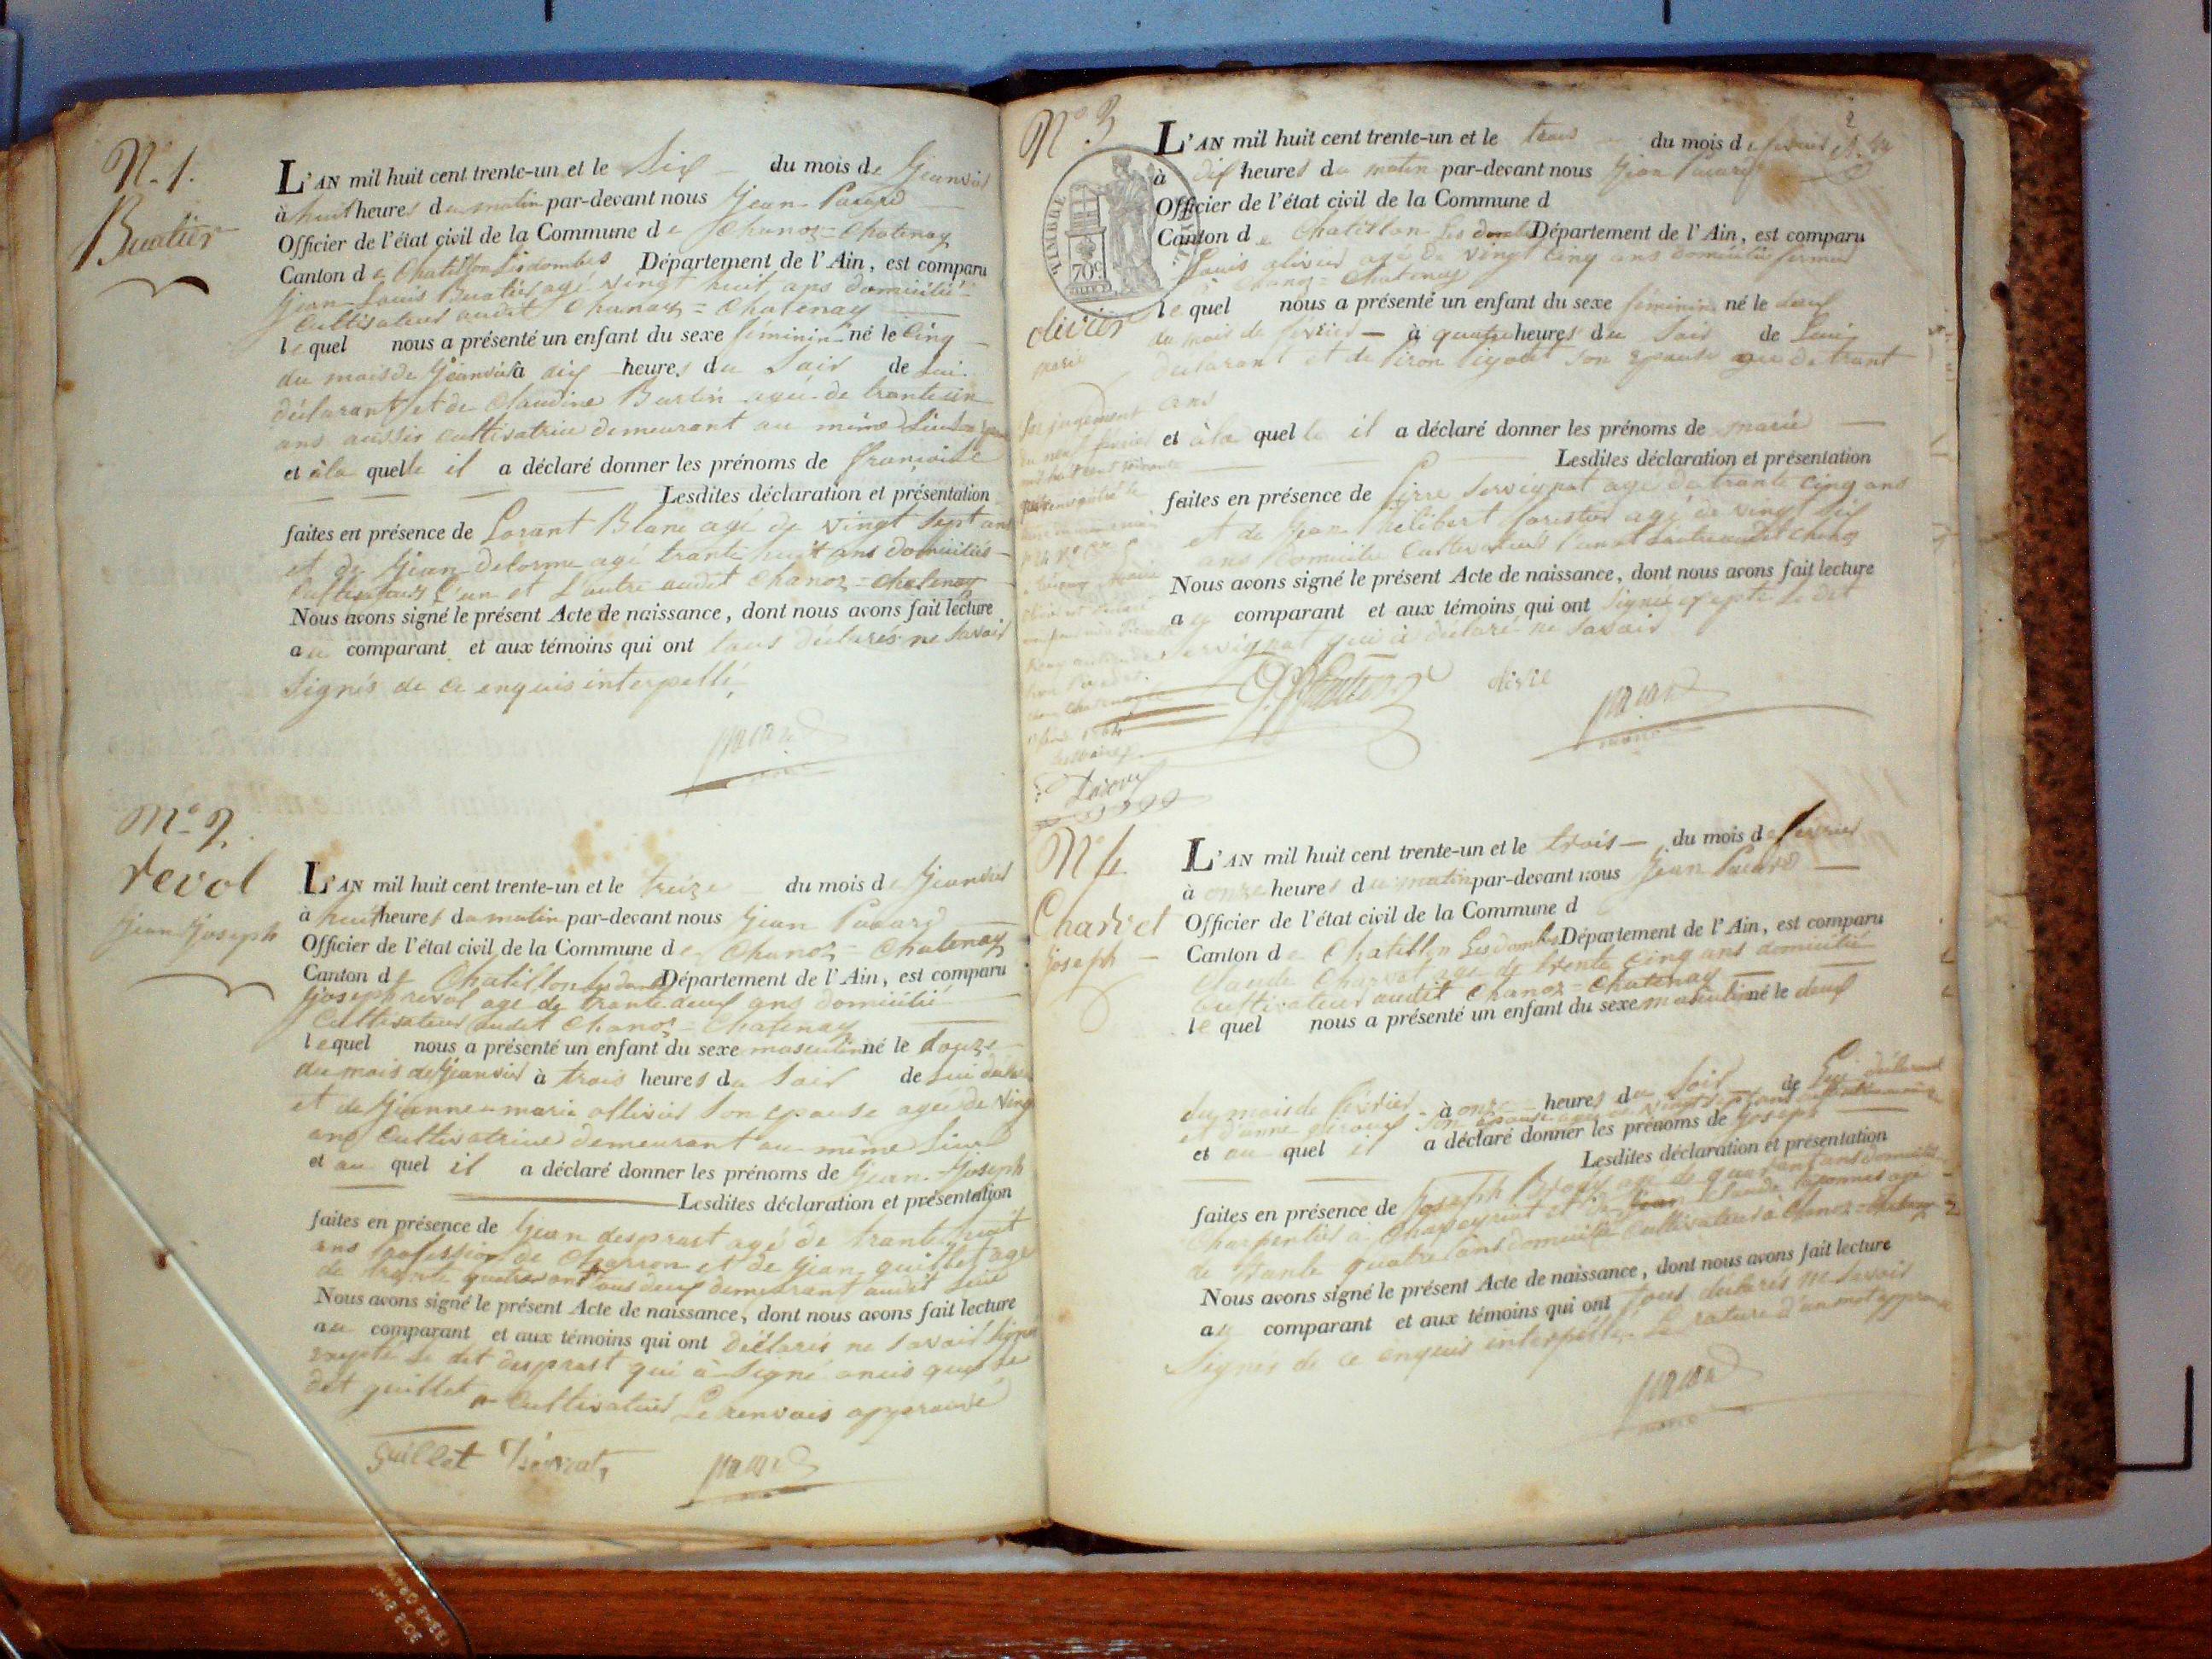 N.º 1.
Buatier
L'AN mil huit cent trente-un et le Six du mois de Jeanvier
à huit heures du matin par-devant nous Jean Pacard
Officier de l'état civil de la Commune de Chanoz = Chatenay
Canton de Chatillon Lesdombes Département de l'Ain, est comparu
Jean Louis Buatier agé vingt huit ans domicilié
Cultivateur audit Chanoz = Chatenay
lequel nous a présenté un enfant du sexe féminin né le Cinq
du mois de Jeanvier à dix heures du Soir de Lui
déclarant et de Claudine Burtin agée de trante un
ans aussis cultivatrice demeurant au même Lieu
et à la quelle il a déclaré donner les prénoms de françoise
Lesdites déclaration et présentation
faites en présence de Lorant Blanc agé de vingt Sept ans
et de Jean delorme agé trante huit ans domiciliés
Cultivateurs L'un et L'autre audit Chanoz = Chatenay
Nous avons signé le présent Acte de naissance, dont nous avons fait lecture
au comparant et aux témoins qui ont tous déclarés ne Savoir
Signés de ce enquis interpellé
pacard
maire
N.º 2.
revol
Jean Joseph
L'AN mil huit cent trente-un et le treize du mois de Jeanvier
à huit heures du matin par-devant nous Jean Pacard
Officier de l'état civil de la Commune de Chanoz = Chatenay
Canton de Chatillon Département de l'Ain, est comparu
Joseph revol age de trante deux ans domicilié
Cultivateur audit Chanoz = Chatenay
lequel nous a présenté un enfant du sexe masculin né le douze
du mois de Jeanvier à trois heures du Soir de Lui
et de Jeanne marie ollivier Son epouse agée de ving
ans Cultivatrice demeurant au même Lieu
et au quel il a déclaré donner les prénoms de Jean Joseph
Lesdites déclaration et présentation
faites en présence de Jean desprast agé de trante huit
ans profession de Charron et de Jean guillet age
de trante quatre ans tous deux demeurant audit Lieu
Nous avons signé le présent Acte de naissance, dont nous avons fait lecture
au comparant et aux témoins qui ont déclarés ne Savoir Signer
exepté Le dit desprast qui à Signé que Le
dit guillet Cultivateur Le renvois approuvé
guillet
pacard
N.º 3
TIMBRE ROYAL
70c
olivier
marie
Par jugement
L'AN mil huit cent trente-un et le trois du mois de fevrier
à dix heures du matin par-devant nous Jean Pacard
Officier de l'état civil de la Commune d
Canton de Chatillon Les dombes Département de l'Ain, est comparu
Louis olivier agé de vingt Cinq ans domicilié fermier
à Chanoz = Chatenay
lequel nous a présenté un enfant du sexe féminin né le deux
du mois de février à quatre heures du Soir de Lui
déclarant et de son epouse agée de trant
ans
et à la quelle il a déclaré donner les prénoms de marie
Lesdites déclaration et présentation
faites en présence de Pierre Servignat agé de trante Cinq ans
et de Jean philibert agé de vingt Six
ans domicilié Cultivateurs L'un et L'autre audit Chanoz
Nous avons signé le présent Acte de naissance, dont nous avons fait lecture
au comparant et aux témoins qui ont Signés exepté Le dit
Servignat qui à déclaré ne Savoir
pacard
maire
N.º 4
Charvet
Joseph
L'AN mil huit cent trente-un et le trois du mois de fevrier
à onze heures du matin par-devant nous Jean Pacard
Officier de l'état civil de la Commune d
Canton de Chatillon Lesdombes Département de l'Ain, est comparu
Claude Charvet age de trente Cinq ans domicilié
Cultivateur audit Chanoz = Chatenay
lequel nous a présenté un enfant du sexe masculin né le deux
du mois de février à onze heures du Soir de Lui déclarant
et d'anne Son Epouse
et au quel il a déclaré donner les prénoms de Joseph
Lesdites déclaration et présentation
faites en présence de Joseph age de quarante ans domicilié
Charpentier à et de Claude agé
de trante quatre ans domicilié Cultivateur à Chanoz = Chatenay
Nous avons signé le présent Acte de naissance, dont nous avons fait lecture
au comparant et aux témoins qui ont tous déclarés ne Savoir
Signés de ce enquis interpellé. La rature d'un mot approuvé
pacard
maire